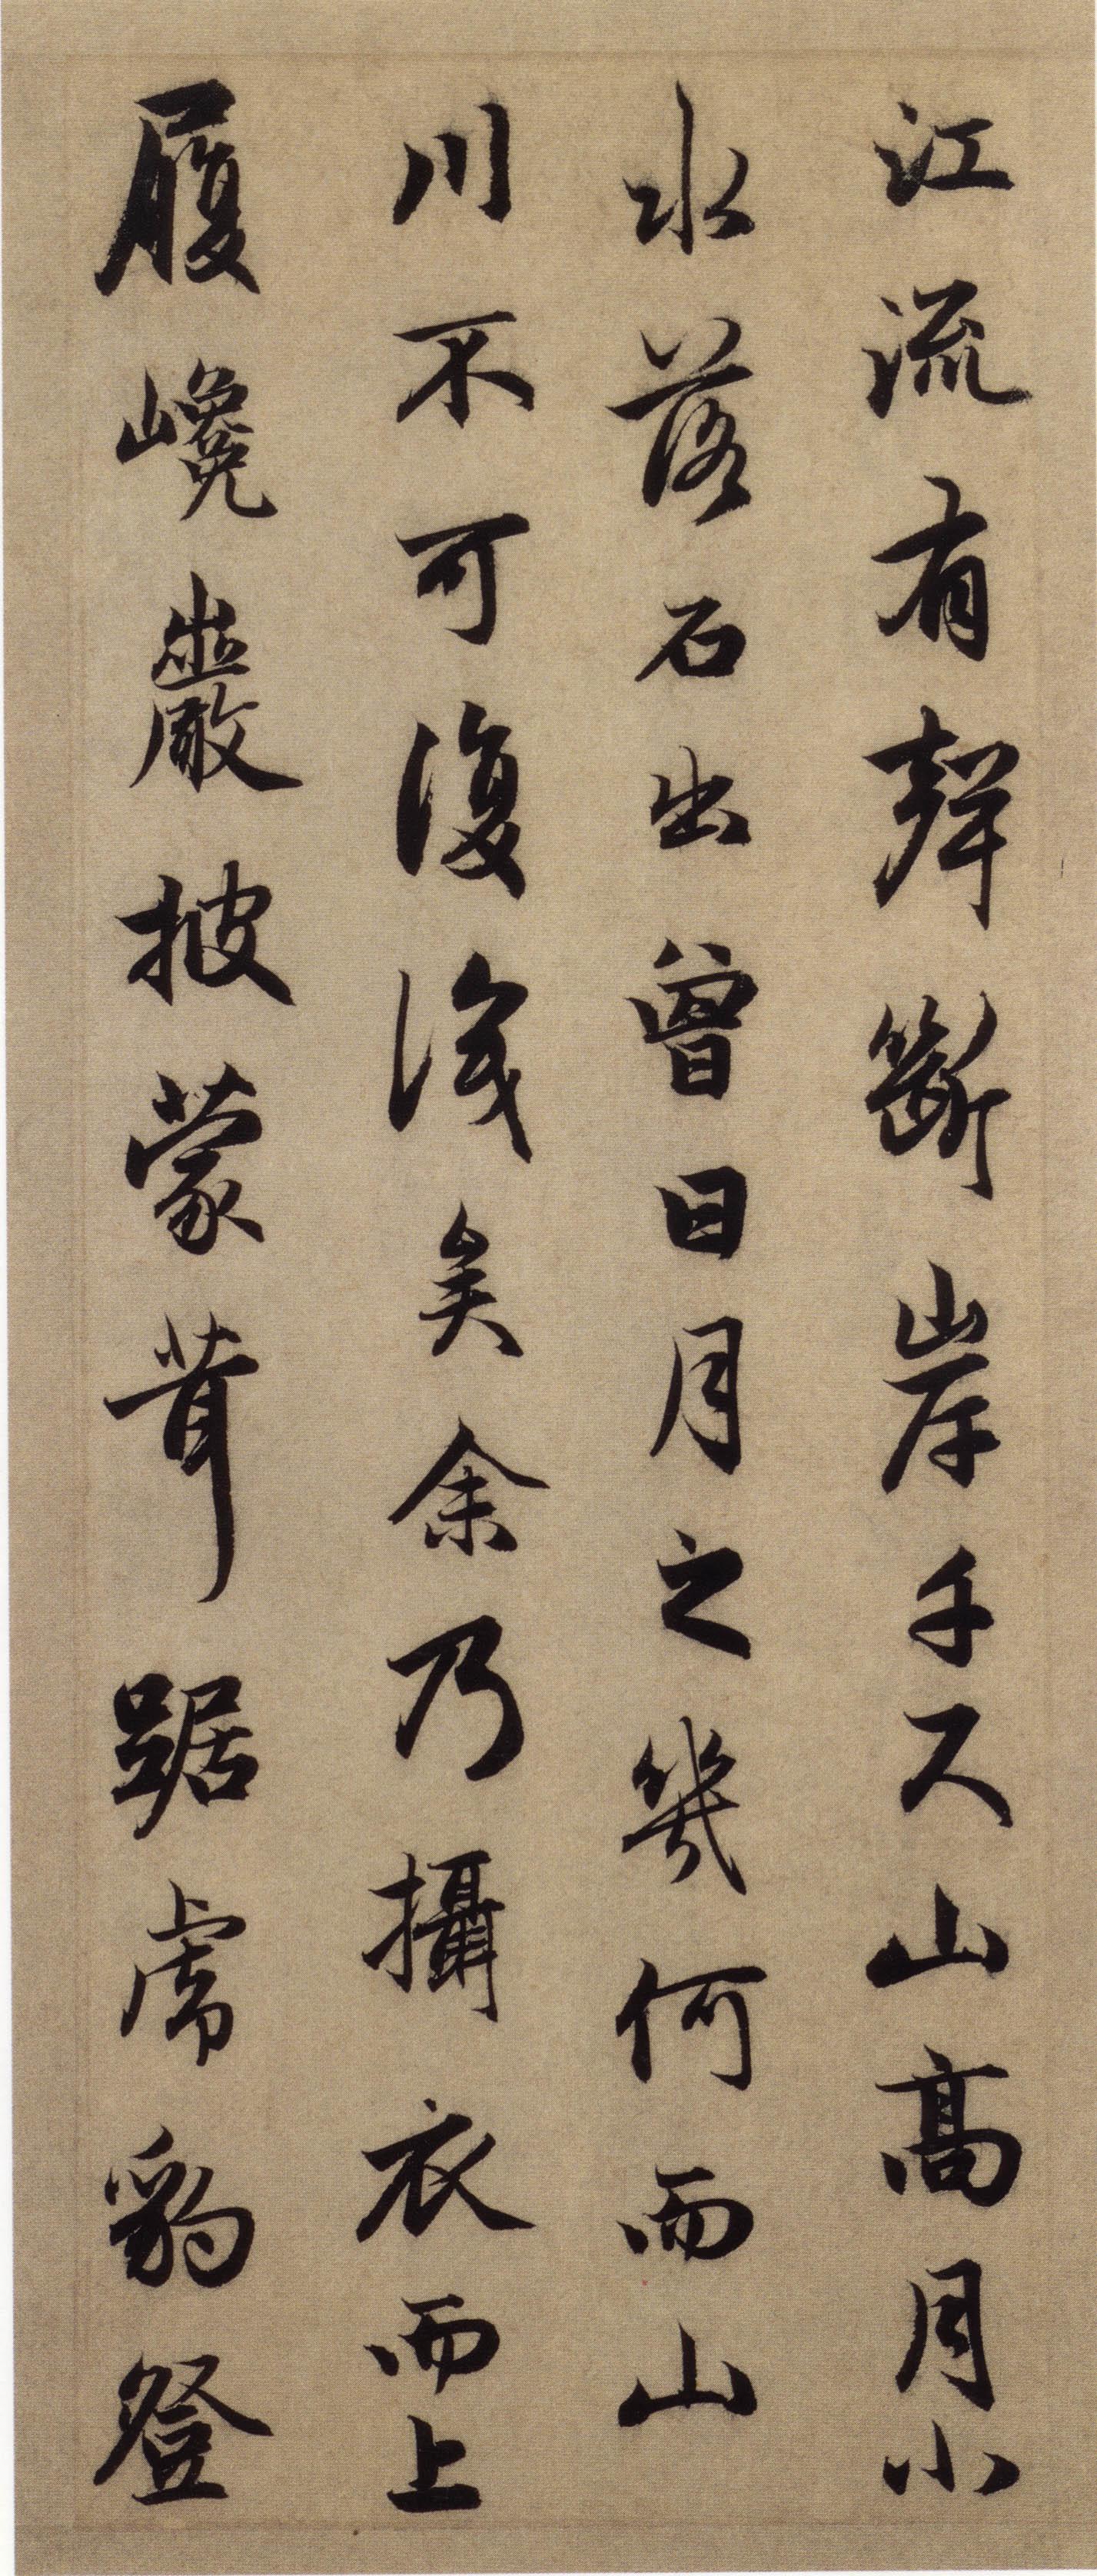 江流有聲斷岸千尺山高月小
水落石出曾日月之幾何而山
川不可復識矣余乃攝衣而上
履巉巖披蒙茸踞虎豹登